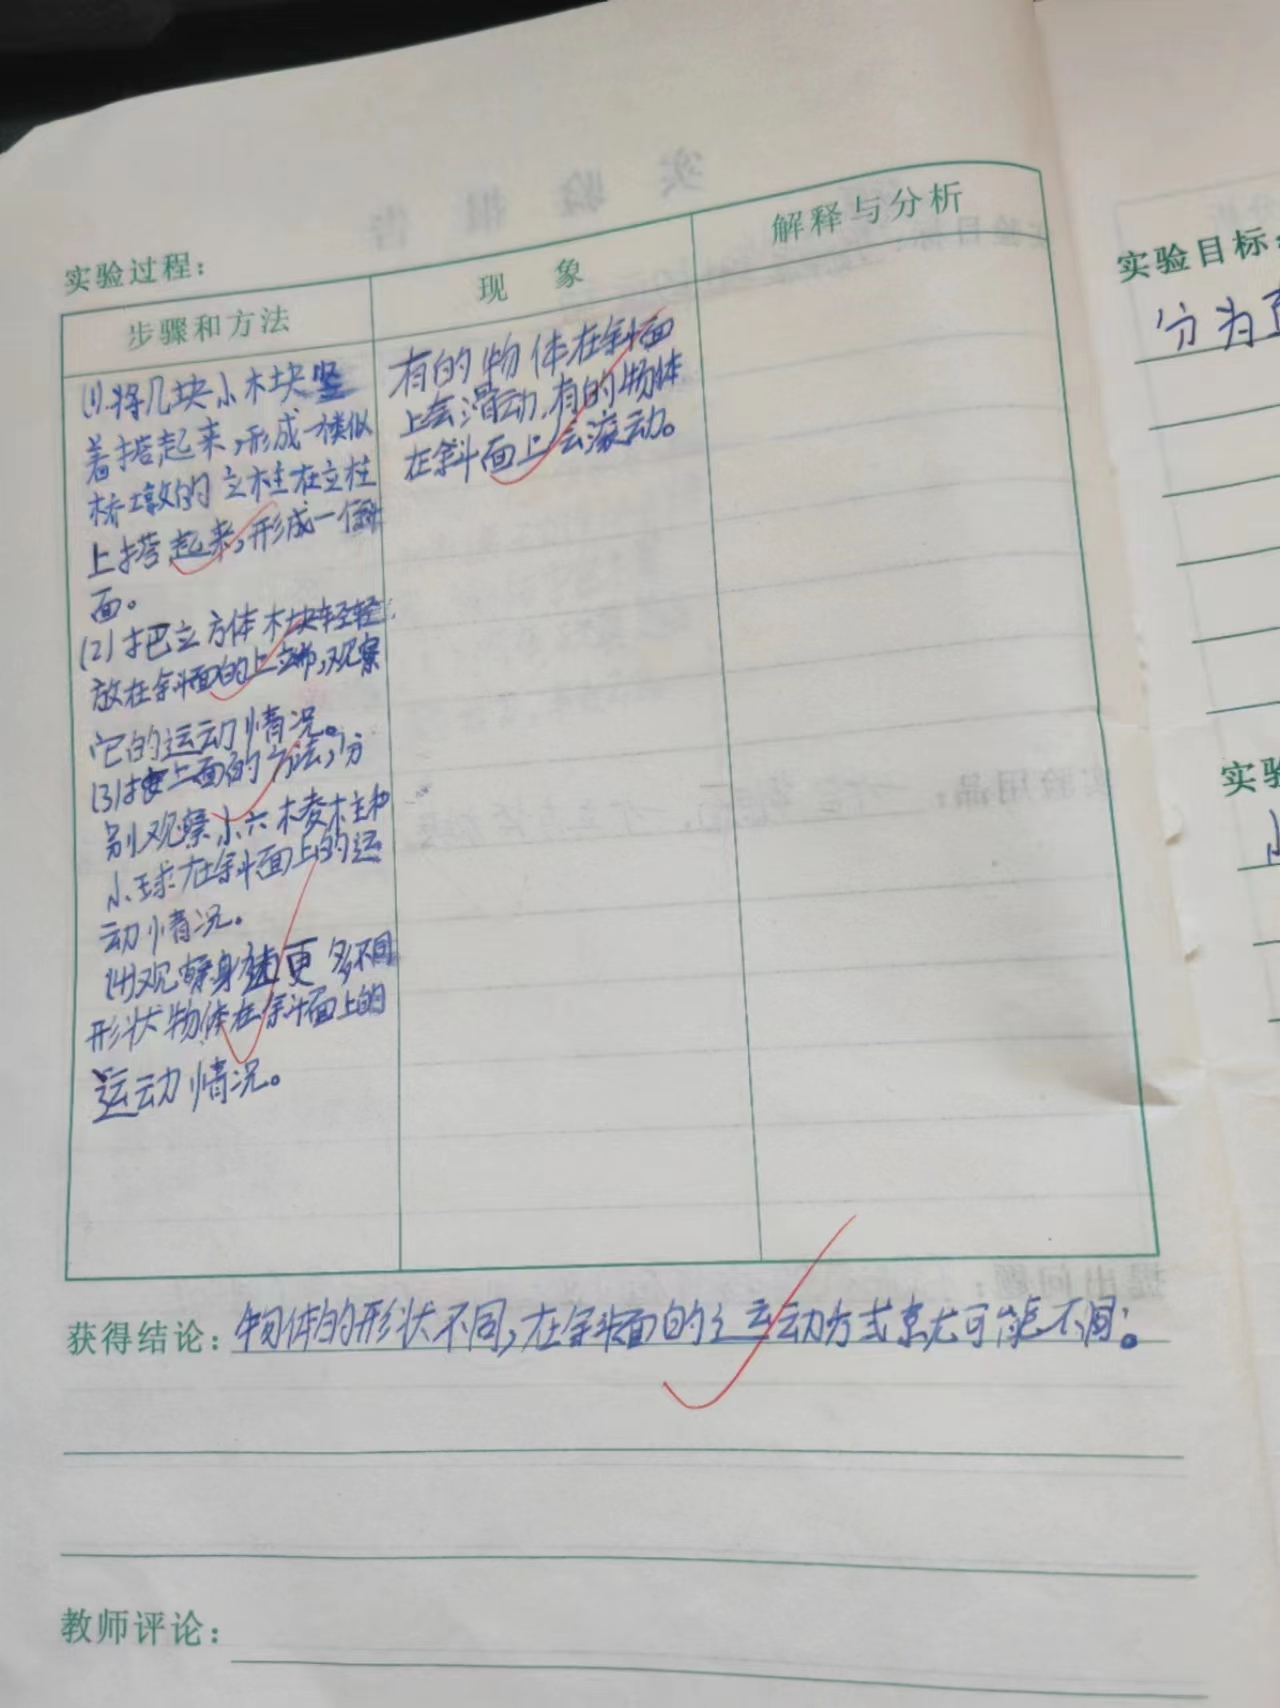 实验过程：
步骤和方法
现 象
解释与分析
(1).将几块小木块竖
着搭起来,形成一类似
桥墩的立柱在立柱
上搭起来,形成一个斜
面。
(2)把立方体木块轻轻
放在斜面的上端,观察
它的运动情况。
(3)按上面的方法,分
别观察小六棱柱和
小球在斜面上的运
动情况。
(4)观察身边更多不同
形状物体在斜面上的
运动情况。
有的物体在斜面
上会滑动,有的物体
在斜面上会滚动。
获得结论：物体的形状不同,在斜面的运动方式就可能不同。
教师评论：
实验目标：
分为
实验
小